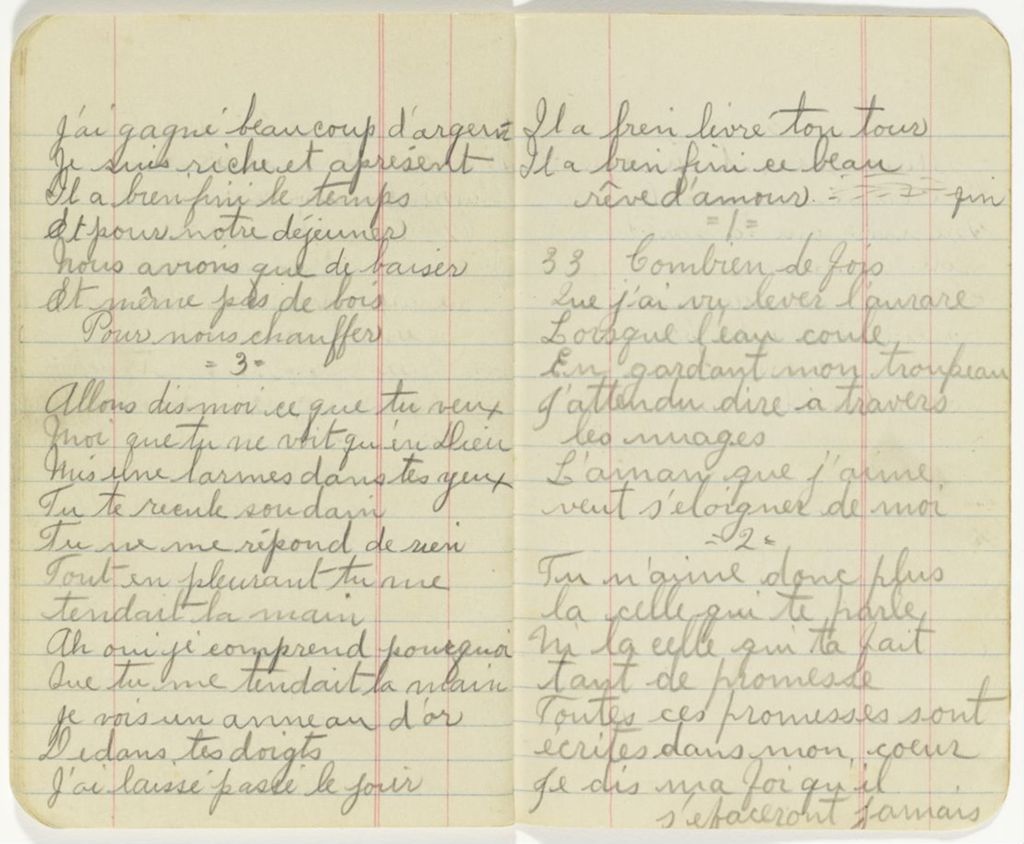 J'ai gagné beaucoup d'argent
Je suis riche et aprésent
Il a bien fini le temps
Et pour notre déjeuner
Nous avions que de baiser
Et même pas de bois
Pour nous chauffer
= 3 =
Allons dis moi ce que tu veux
Moi que tu ne voit qu'en Dieu
Mis une larmes dans tes yeux
Tu te recule soudain
Tu ne me répond de rien
Tout en pleurant tu me
tendait la main
Ah oui je comprend pourquoi
Que tu me tendait la main
Je vois un anneau d'or
Dedans tes doigts
J'ai laissé passé le jour
Il a bien livre ton tour
Il a bien fini ce beau
rêve d'amour fin
= 1 =
33 Combien de fois
Que j'ai vu lever l'aurare
Lorsque l'eau coule
En gardant mon troupeau
J'attendu dire a travers
les nuages
L'aman que j'aime
veut s'eloigner de moi
= 2 =
Tu n'aime donc plus
la celle qui te parle
Ni la celle qui ta fait
tant de promesse
Toutes ces promesses sont
écrites dans mon coeur
Je dis ma foi qu'il
s'efaceront jamais